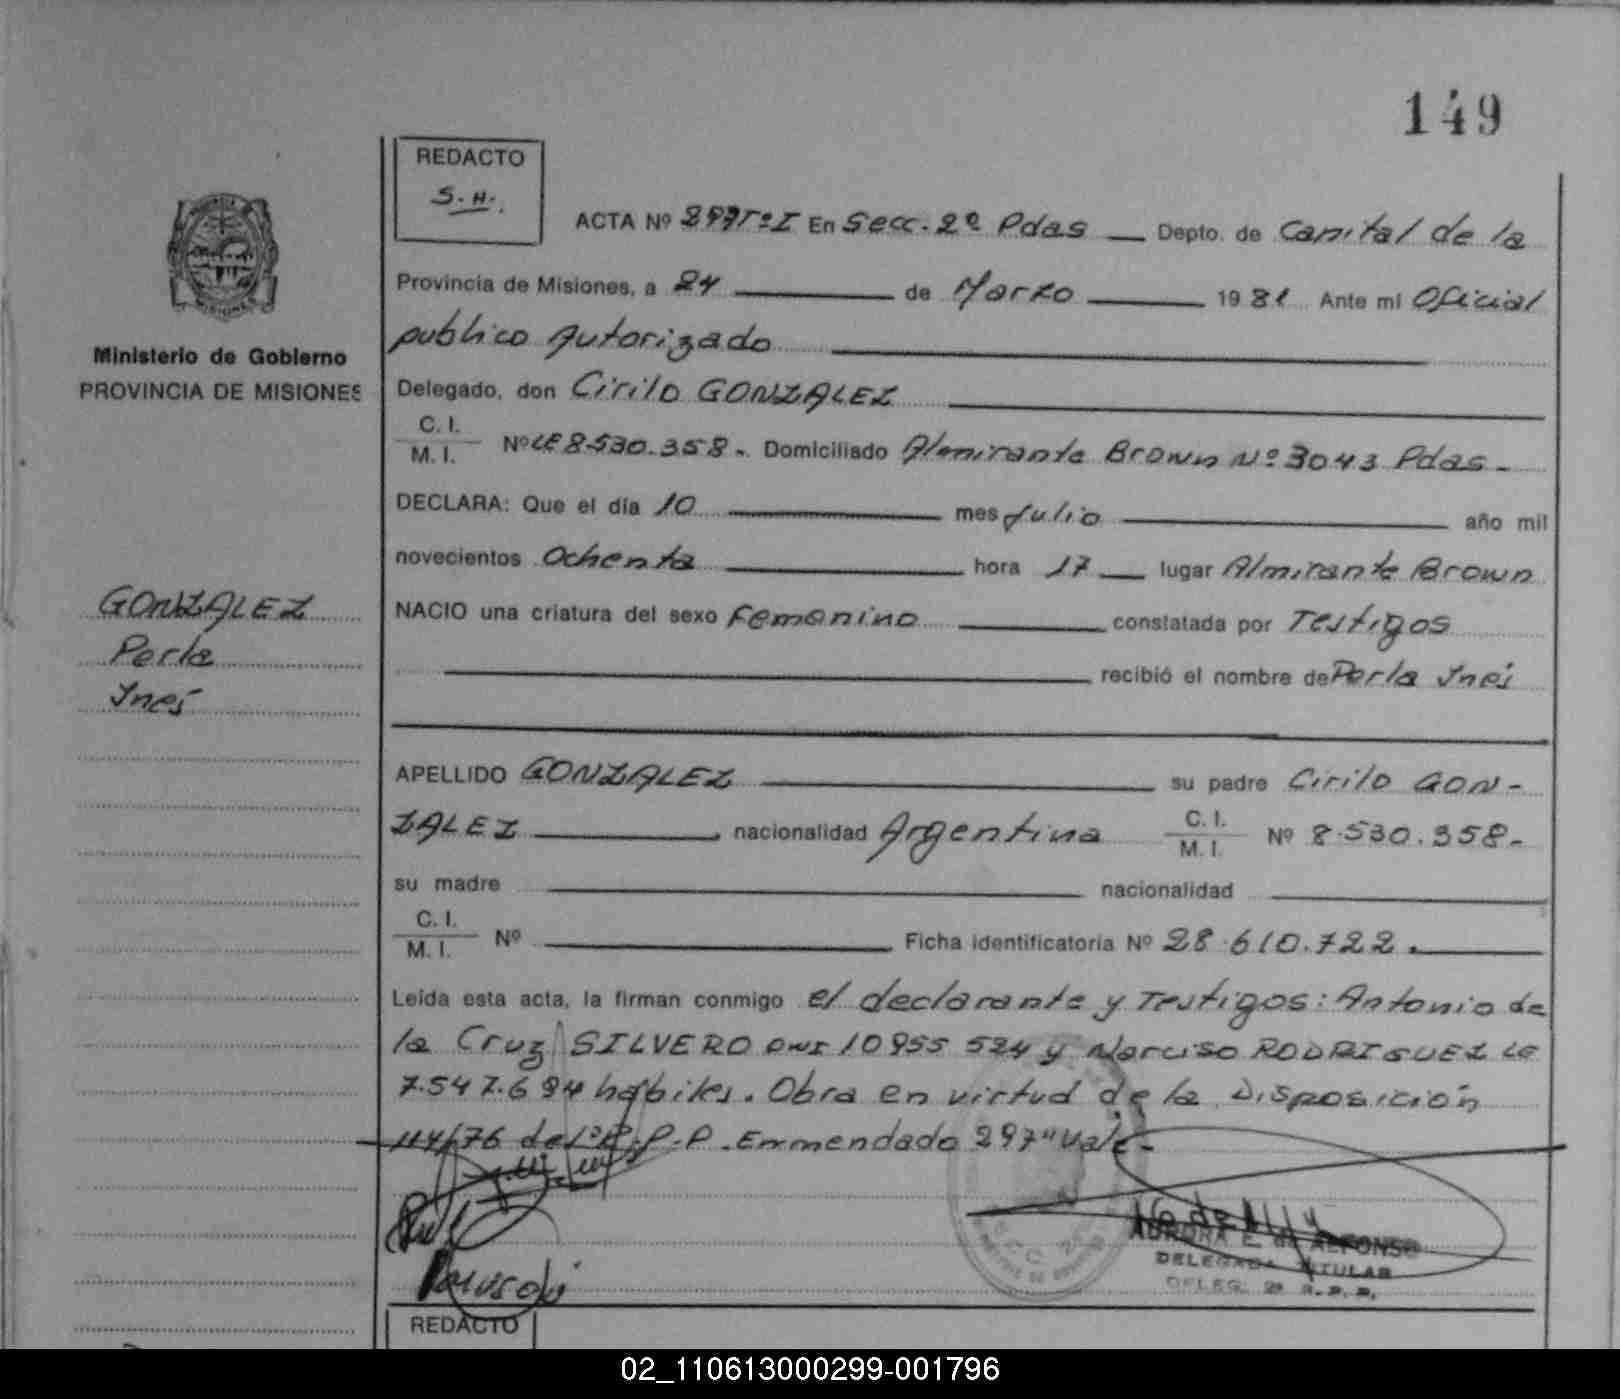 149
REDACTO
S.H.
ACTA Nº 297 Tº I En Secc. 2º Pdas Depto. de Capital de la
Provincia de Misiones, a 24 de Marzo 1981 Ante mi Oficial
publico Autorizado
Ministerio de Gobierno
PROVINCIA DE MISIONES
Delegado, don Cirilo GONZALEZ
C. I.
M. I. Nº LE 8.530.358. Domiciliado Almirante Brown Nº 3043 Pdas-
DECLARA: Que el día 10 mes Julio año mil
novecientos Ochenta hora 17 lugar Almirante Brown
GONZALEZ
Perla
Inés
NACIO una criatura del sexo Femenino constatada por Testigos
recibió el nombre de Perla Inés
APELLIDO GONZALEZ su padre Cirilo GON-
ZALEZ nacionalidad Argentina C. I. M. I. Nº 8.530.358-
su madre nacionalidad
C. I.
M. I. Nº Ficha identificatoria Nº 28.610.722.
Leída esta acta, la firman conmigo el declarante y Testigos: Antonio de
la Cruz SILVERO DNI 10955 524 y Narciso RODRIGUEZ LE
7.547.694 hábiles. Obra en virtud de la Disposición
114/76 del R.P.P. Emmendado 297" Vale-
AURORA E. de ALFONSO
DELEGADA TITULAR
DELEG. 2ª R.P.P.
REDACTO
02_110613000299-001796